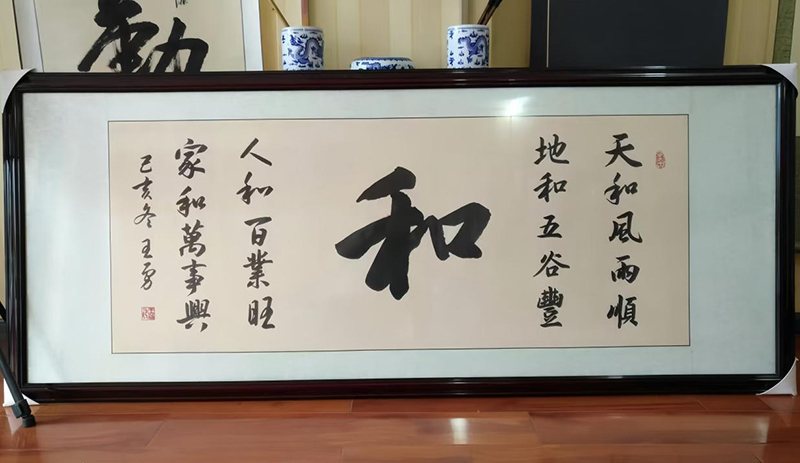 天和風雨順
地和五谷豐
和
人和百業旺
家和萬事興
己亥冬王勇